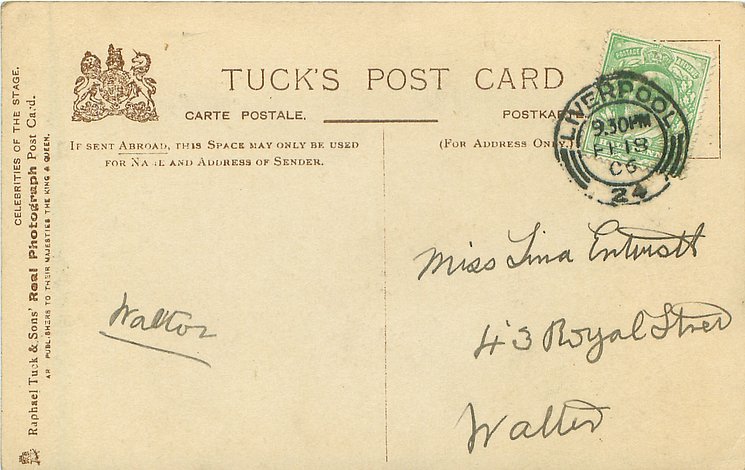 TUCK'S POST CARD
CARTE POSTALE.
IF SENT ABROAD, THIS SPACE MAY ONLY BE USED
FOR NAME AND ADDRESS OF SENDER.
(FOR ADDRESS ONLY.)
POSTAGE
LIVERPOOL
9.30PM
18
06
24
CELEBRITIES OF THE STAGE.
Raphael Tuck & Sons' Real Photograph Post Card.
PUBLISHERS TO THEIR MAJESTIES THE KING & QUEEN.
Walton
Miss Lina Entwistle
43 Royal Street
Walton